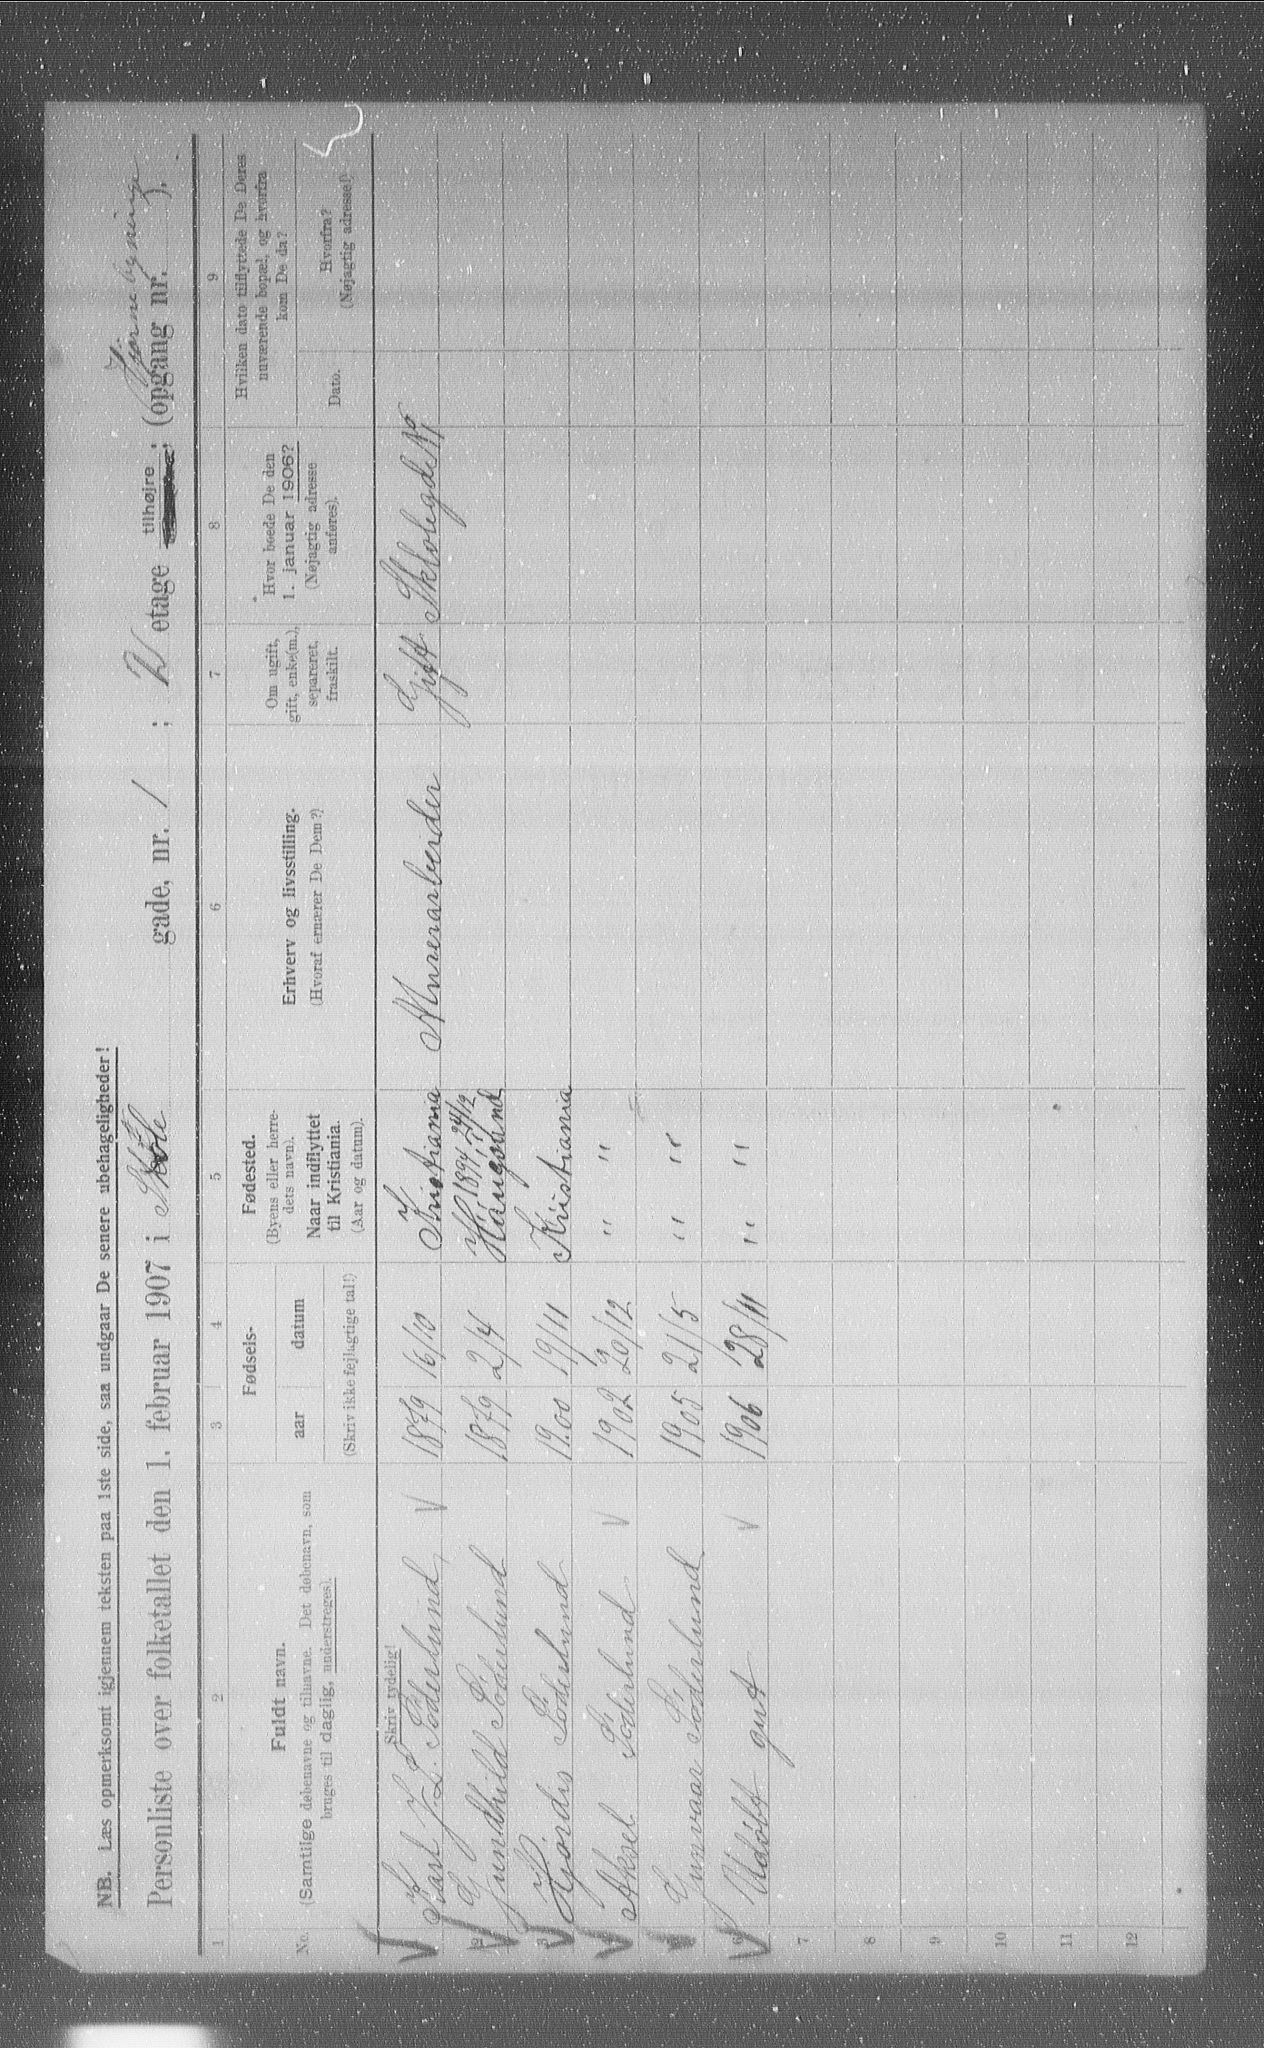 NB. Læs opmerksomt igjennem teksten paa 1ste side, saa undgaar De senere ubehageligheder!
Personliste over folketallet den 1. februar 1907 i Skole gade, nr. 1 ; 2 etage tilhøjre, (opgang nr. ).
1 2 3 4 5 6 7 8 9
No.
Fuldt navn.
(Samtlige døbenavne og tilnavne. Det døbenavn, som
bruges til daglig, understreges).
Fødsels-
aar datum
(Skriv ikke fejlagtige tal!)
Fødested.
(Byens eller herre-
dets navn).
Naar indflyttet
til Kristiania.
(Aar og datum).
Erhverv og livsstilling.
(Hvoraf ernærer De Dem?)
Om ugift,
gift, enke(m.),
separeret,
fraskilt.
Hvor boede De den
1. januar 1906?
(Nøjagtig adresse
anføres).
Hvilken dato tilflyttede De Deres
nuværende bopæl, og hvorfra
kom De da?
Dato.
Hvorfra?
(Nøjagtig adresse!)
Skriv tydelig!
Karl J. L. Söderlund 1879 16/10 Kristiania Murerarbeider Gift Skolegde No 1
2 Gundhild Söderlund 1879 2/4 1894 24/12 Haugsund
3 Hjördis Söderlund 1900 19/11 Kristiania
4 Aksel Söderlund 1902 20/12 " "
5 Gunvaar Söderlund 1905 21/5 " "
6 Udöbt gut 1906 28/11 " "
7
8
9
10
11
12